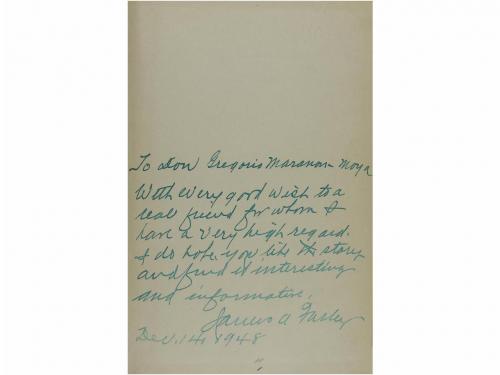 To Don Gregorio Maranon Moya
With every good wish to a
real friend for whom I
have a very high regard.
I do hope you like the story
and find it interesting
and informative.
James A Farley
Dec. 14, 1948